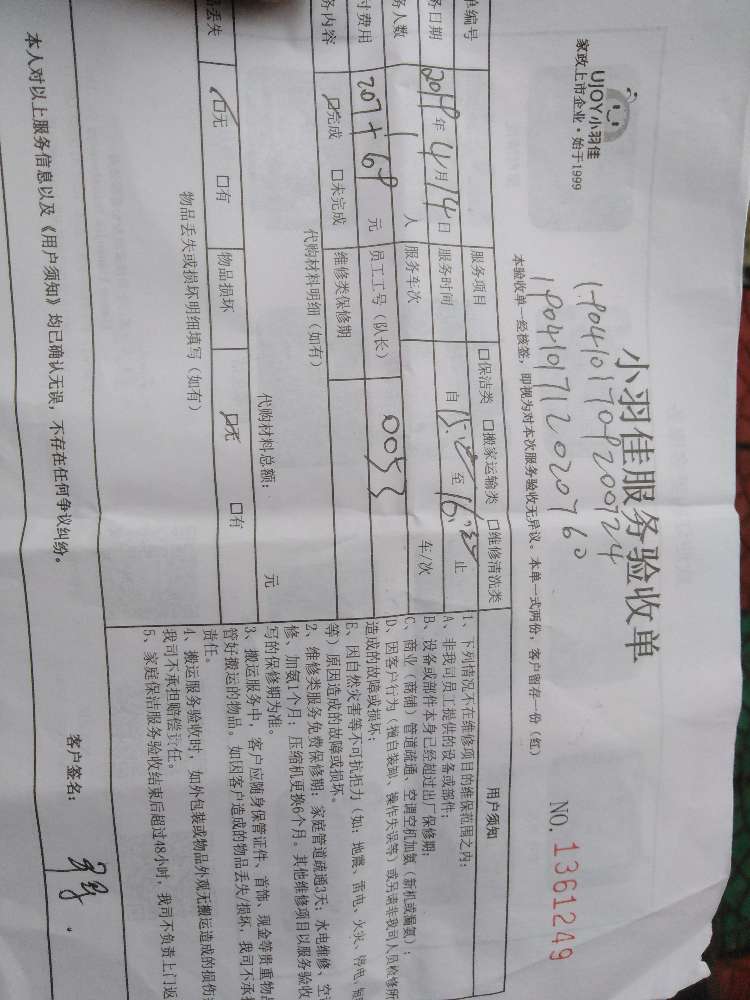 UJOY小羽佳
家政上市企业·始于1999
小羽佳服务验收单
NO. 1361249
本验收单一经核签，即视为对本次服务验收无异议。本单一式两份，客户留存一份（红）
单编号
服务项目 □保洁类 □搬家运输类 □维修清洗类
务日期 2019年4月14日 服务时间 自 至 止
务人数 1 人 服务车次 车/次
付费用 207+69 元 员工工号（队长） 0053
务内容 ☑完成 □未完成 维修类保修期
代购材料明细（如有）
代购材料总额： 元
品丢失 ☑无 □有 物品损坏 ☑无 □有
物品丢失或损坏明细填写（如有）
用户须知
1、下列情况不在维修项目的维保范围之内：
A、非我司员工提供的设备或部件；
B、设备或部件本身已经超过出厂保修期；
C、商业（商铺）管道疏通、空调空机加氨（新机或漏氨）；
D、因客户行为（擅自装卸、操作失误等）或另请非我司人员检修所
造成的故障或损坏；
E、因自然灾害等不可抗拒力（如：地震、雷电、火灾、停电、短
等）原因造成的故障或损坏。
2、维修类服务免费保修期：家庭管道疏通3天；水电维修、空调
修、加氨1个月；压缩机更换6个月。其他维修项目以服务验收
写的保修期为准。
3、搬运服务中，客户应随身保管证件、首饰、现金等贵重物品
管好搬运的物品。如因客户造成的物品丢失/损坏，我司不承担
责任。
4、搬运服务验收时，如外包装或物品外观无搬运造成的损伤
我司不承担赔偿责任。
5、家庭保洁服务验收结束后超过48小时，我司不负责上门返
本人对以上服务信息以及《用户须知》均已确认无误，不存在任何争议纠纷。
客户签名：